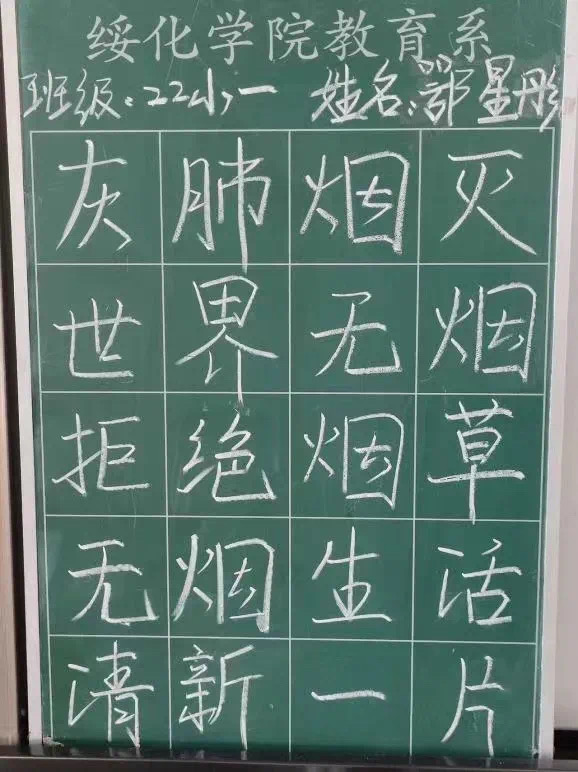 绥化学院教育系
班级:22小一 姓名:鄂星彤
灰肺烟灭
世界无烟
拒绝烟草
无烟生活
清新一片